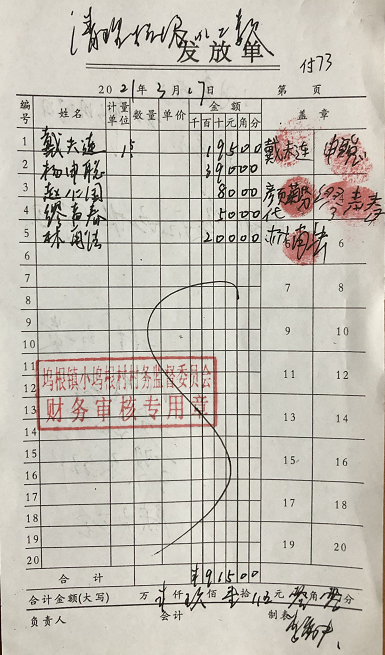 发放单
付73
2021年3月17日 第 页
编号 姓名 计量单位 数量 单价 金额 千百十元角分 盖章
1 戴夫连 15 19500 戴夫连
2 杨申聪 39000 申聪
3 赵仁国 8000
4 缪嘉春 5000 缪嘉春
5 林周法 20000 6
6
7 7 8
8
9 9 10
10
11 11 12
12
13 13 14
14
15 15 16
16
17 17 18
18
19 19 20
20
坞根镇小坞根村村务监督委员会
财务审核专用章
合计 ¥91500
合计金额(大写) 万 仟玖佰壹拾伍元零角零分
负责人 会计 制表